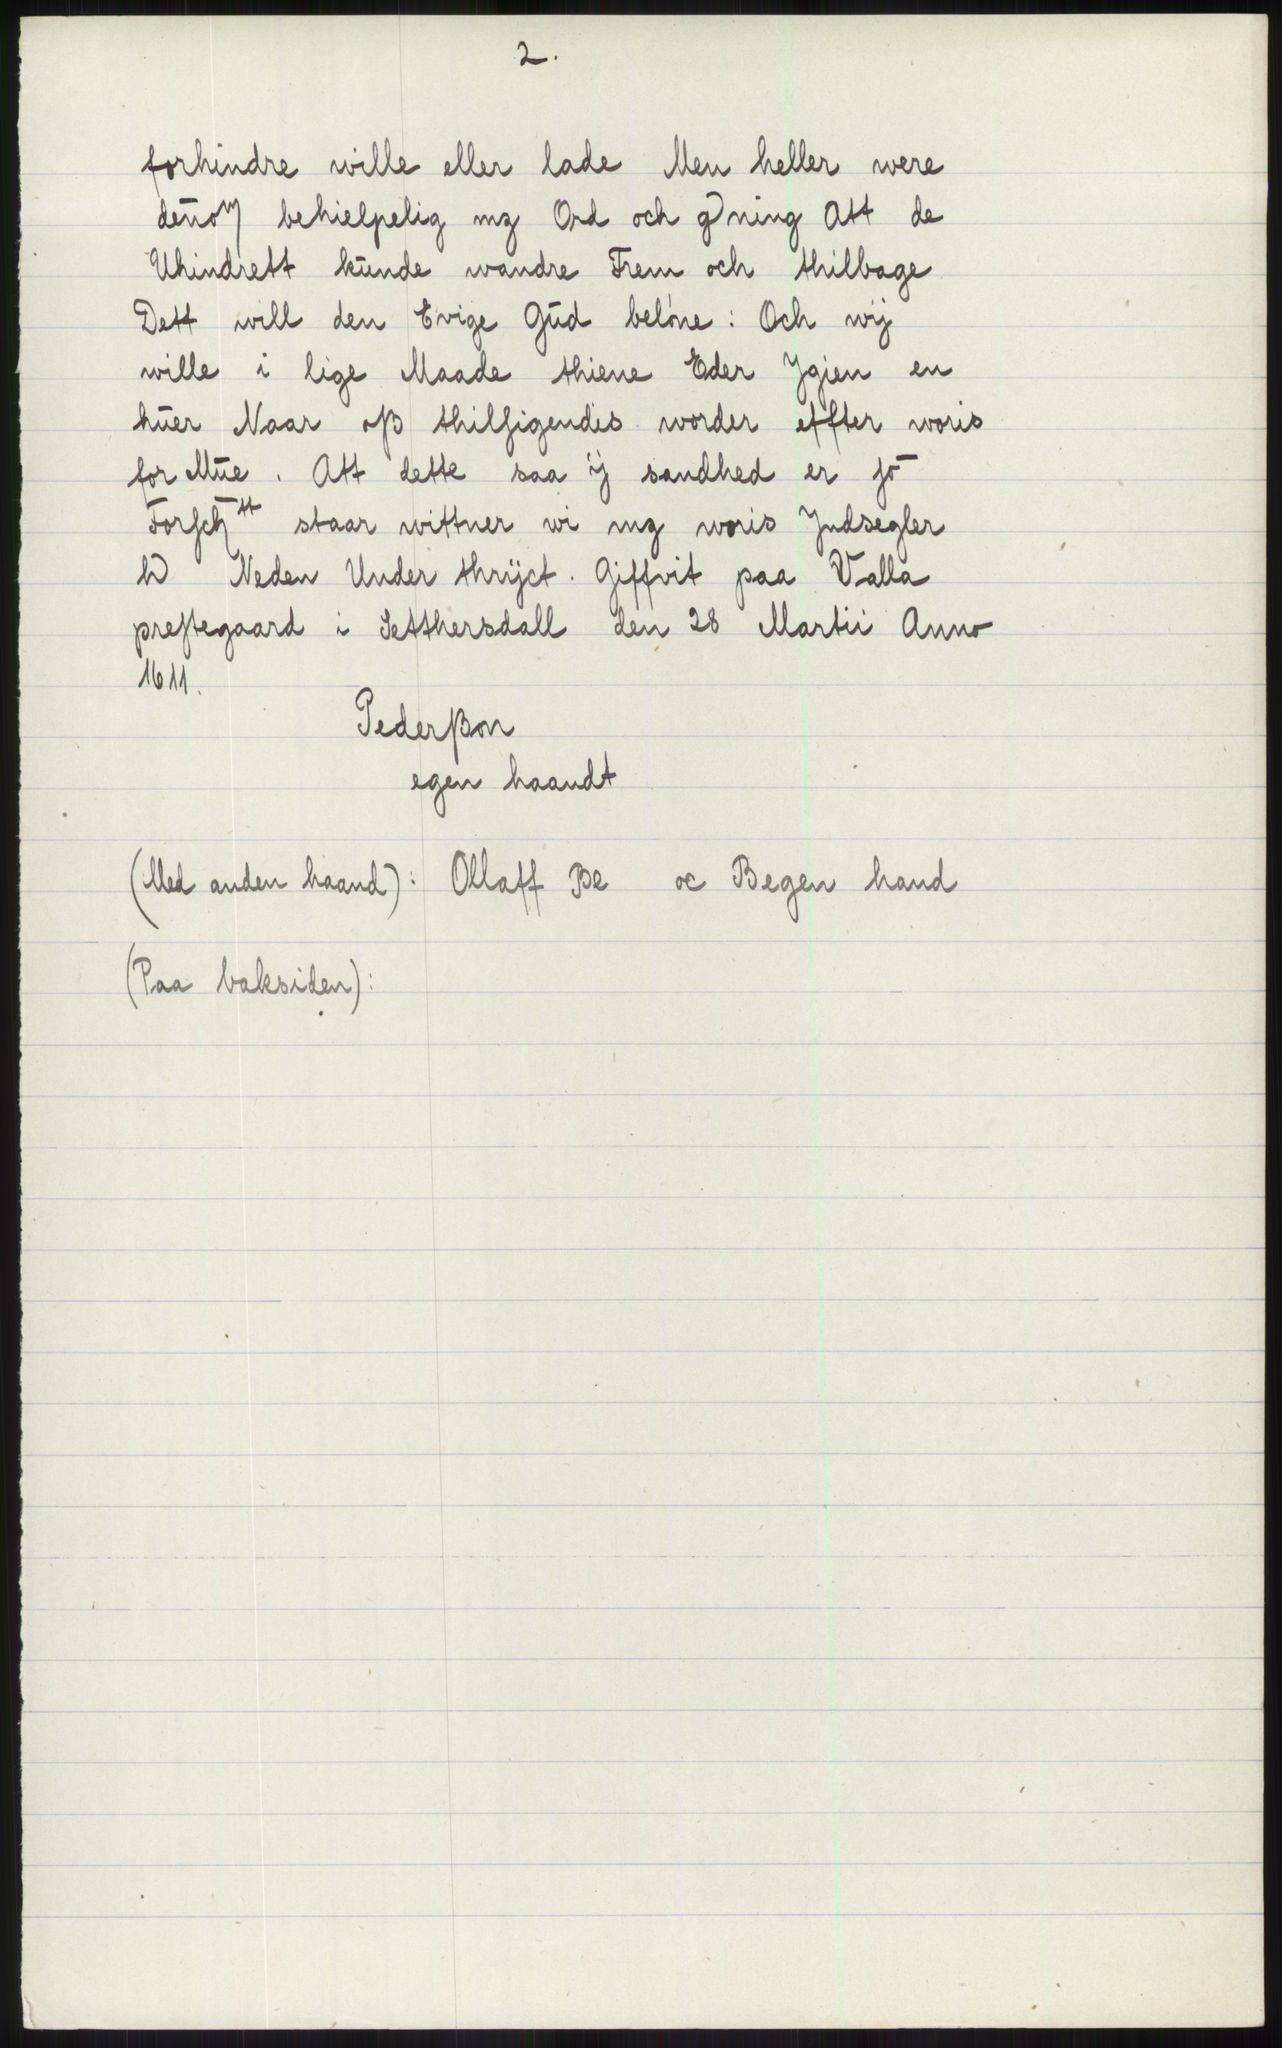 2.
forhindre wille eller lade Men heller were
behielpelig mz Ord och gning Att de
Uhindrett kunde wandre Frem och thilbage
Dett will den Evige Gud belöne: Och wij
wille i lige Maade thiene Eder Ygien en
huer Naar oß thilsigendis worder effter woris
for Mūe. Att dette saa ij sandhed er
staar wittner wi mz woris Jndsegler
Neden Under thrÿct. Giffvit paa Valla
prestegaard i Setthersdall den 28 Martii Anno
1611.
Pederßon
egen haandt
(Med anden haand): Ollaff ße oc Begen hand
(Paa baksiden):